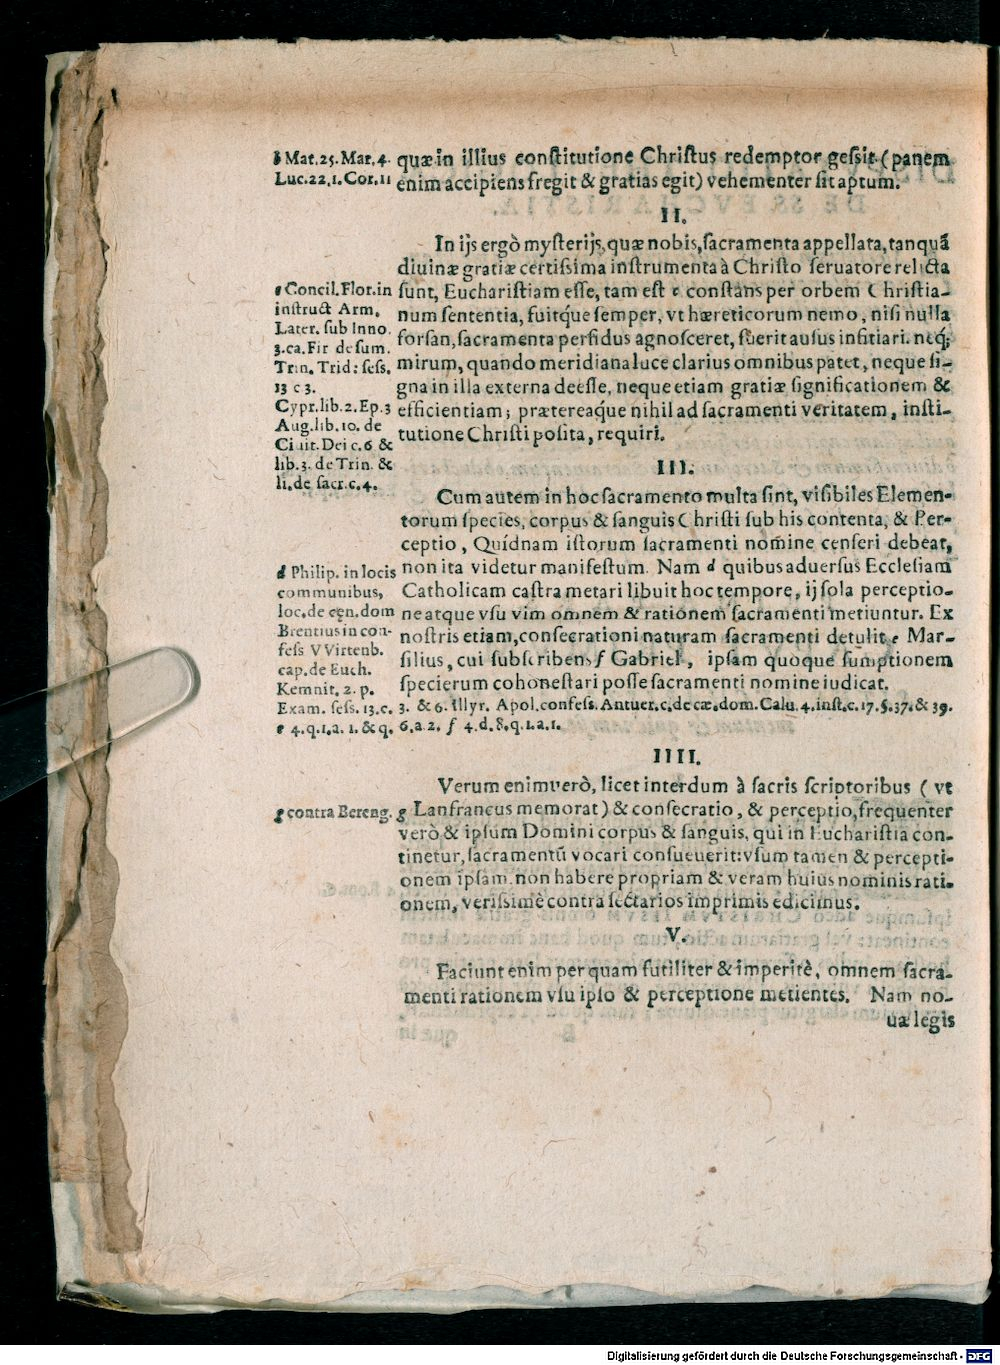 b Mat. 25. Mar. 4. quæ in illius constitutione Christus redemptor gessit (panem
Luc. 22. 1. Cor. 11 enim accipiens fregit & gratias egit) vehementer sit aptum.
II.
In ijs ergò mysterijs, quæ nobis, sacramenta appellata, tanquã
diuinæ gratiæ certissima instrumenta à Christo seruatore relicta
sunt, Eucharistiam esse, tam est c constans per orbem Christia-
num sententia, fuitque semper, vt hæreticorum nemo, nisi nulla
forsan, sacramenta perfidus agnosceret, fuerit ausus infitiari. neq;
mirum, quando meridiana luce clarius omnibus patet, neque si-
gna in illa externa deesse, neque etiam gratiæ significationem &
efficientiam; prætereaque nihil ad sacramenti veritatem, insti-
tutione Christi posita, requiri.
c Concil. Flor. in
instruct Arm.
Later. sub Inno.
3. ca. Fir de sum.
Trin. Trid: sess.
13 c 3.
Cypr. lib. 2. Ep. 3
Aug. lib. 10. de
Ciuit. Dei c. 6 &
lib. 3. de Trin. &
li. de sacr. c. 4.
III.
Cum autem in hoc sacramento multa sint, visibiles Elemen-
torum species, corpus & sanguis Christi sub his contenta, & Per-
ceptio, Quídnam istorum sacramenti nomine censeri debeat,
non ita videtur manifestum. Nam d quibus aduersus Ecclesiam
Catholicam castra metari libuit hoc tempore, ij sola perceptio-
ne atque vsu vim omnem & rationem sacramenti metiuntur. Ex
nostris etiam, consecrationi naturam sacramenti detulit e Mar-
silius, cui subscribens f Gabriel, ipsam quoque sumptionem
specierum cohonestari posse sacramenti nomine iudicat.
d Philip. in locis
communibus,
loc. de cęn. dom
Brentius in con-
fess VVirtenb.
cap. de Euch.
Kemnit. 2. p.
Exam. sess. 13. c. 3. & 6. Illyr. Apol. confess. Antuer. c. de cæ. dom. Calu. 4. inst. c. 17. §. 37. & 39.
e 4. q. 1. a. 1. & q. 6. a. 2. f 4. d. 8. q. 1. a. 1.
IIII.
Verum enimuerò, licet interdum à sacris scriptoribus (vt
g contra Bereng. g Lanfrancus memorat) & consecratio, & perceptio, frequenter
verò & ipsum Domini corpus & sanguis, qui in Eucharistia con-
tinetur, sacramentũ vocari consueuerit: vsum tamen & percepti-
onem ipsam non habere propriam & veram huius nominis rati-
onem, verissimè contra sectarios imprimis edicimus.
V.
Faciunt enim per quam futiliter & imperitè, omnem sacra-
menti rationem vsu ipso & perceptione metientes. Nam no-
uæ legis
Digitalisierung gefördert durch die Deutsche Forschungsgemeinschaft - DFG